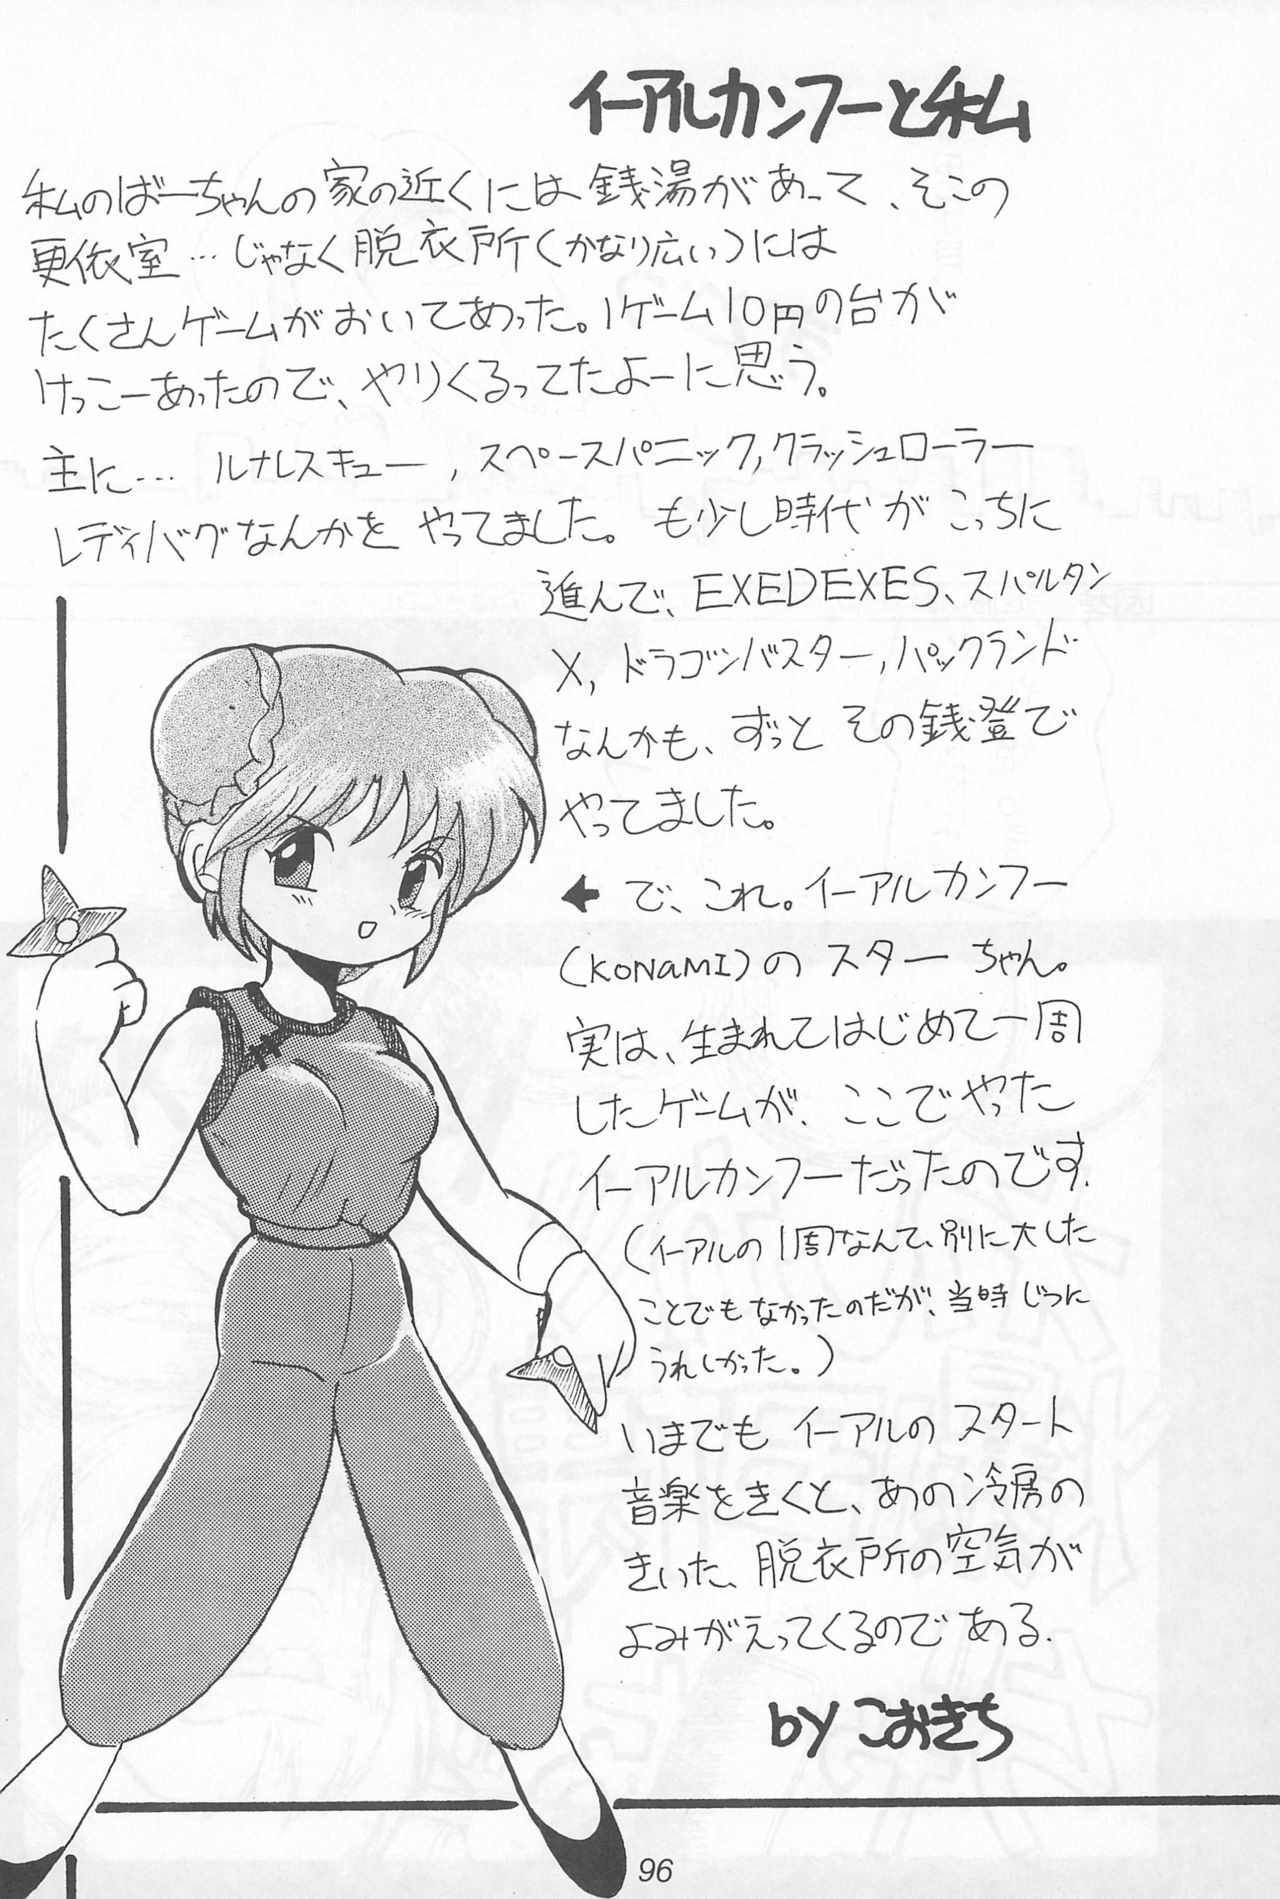 イーアルカンフーと私
私のばーちゃんの家の近くには銭湯があって、そこの
更依室…じゃなく脱衣所(かなり広い)には
たくさんゲームがおいてあった。1ゲーム10円の台が
けっこーあったので、やりくるってたよーに思う。
主に… ルナレスキュー,スペースパニック,クラッシュローラー
レディバグなんかを やってました。も少し時代がこっちに
進んで、EXEDEXES、スパルタン
X,ドラゴンバスター,パックランド
なんかも、ずっと その銭登で
やってました。
← で、これ。イーアルカンフー
(KONAMI)の スター ちゃん。
実は、生まれてはじめて一周
したゲームが、ここでやった
イーアルカンフーだったのです.
(イーアルの1周なんて、別に大した
ことでもなかったのだが、当時じつに
うれしかった。)
いまでも イーアルの スタート
音楽をきくと、あの冷房の
きいた、脱衣所の空気が
よみがえってくるのである.
by こおきち
96